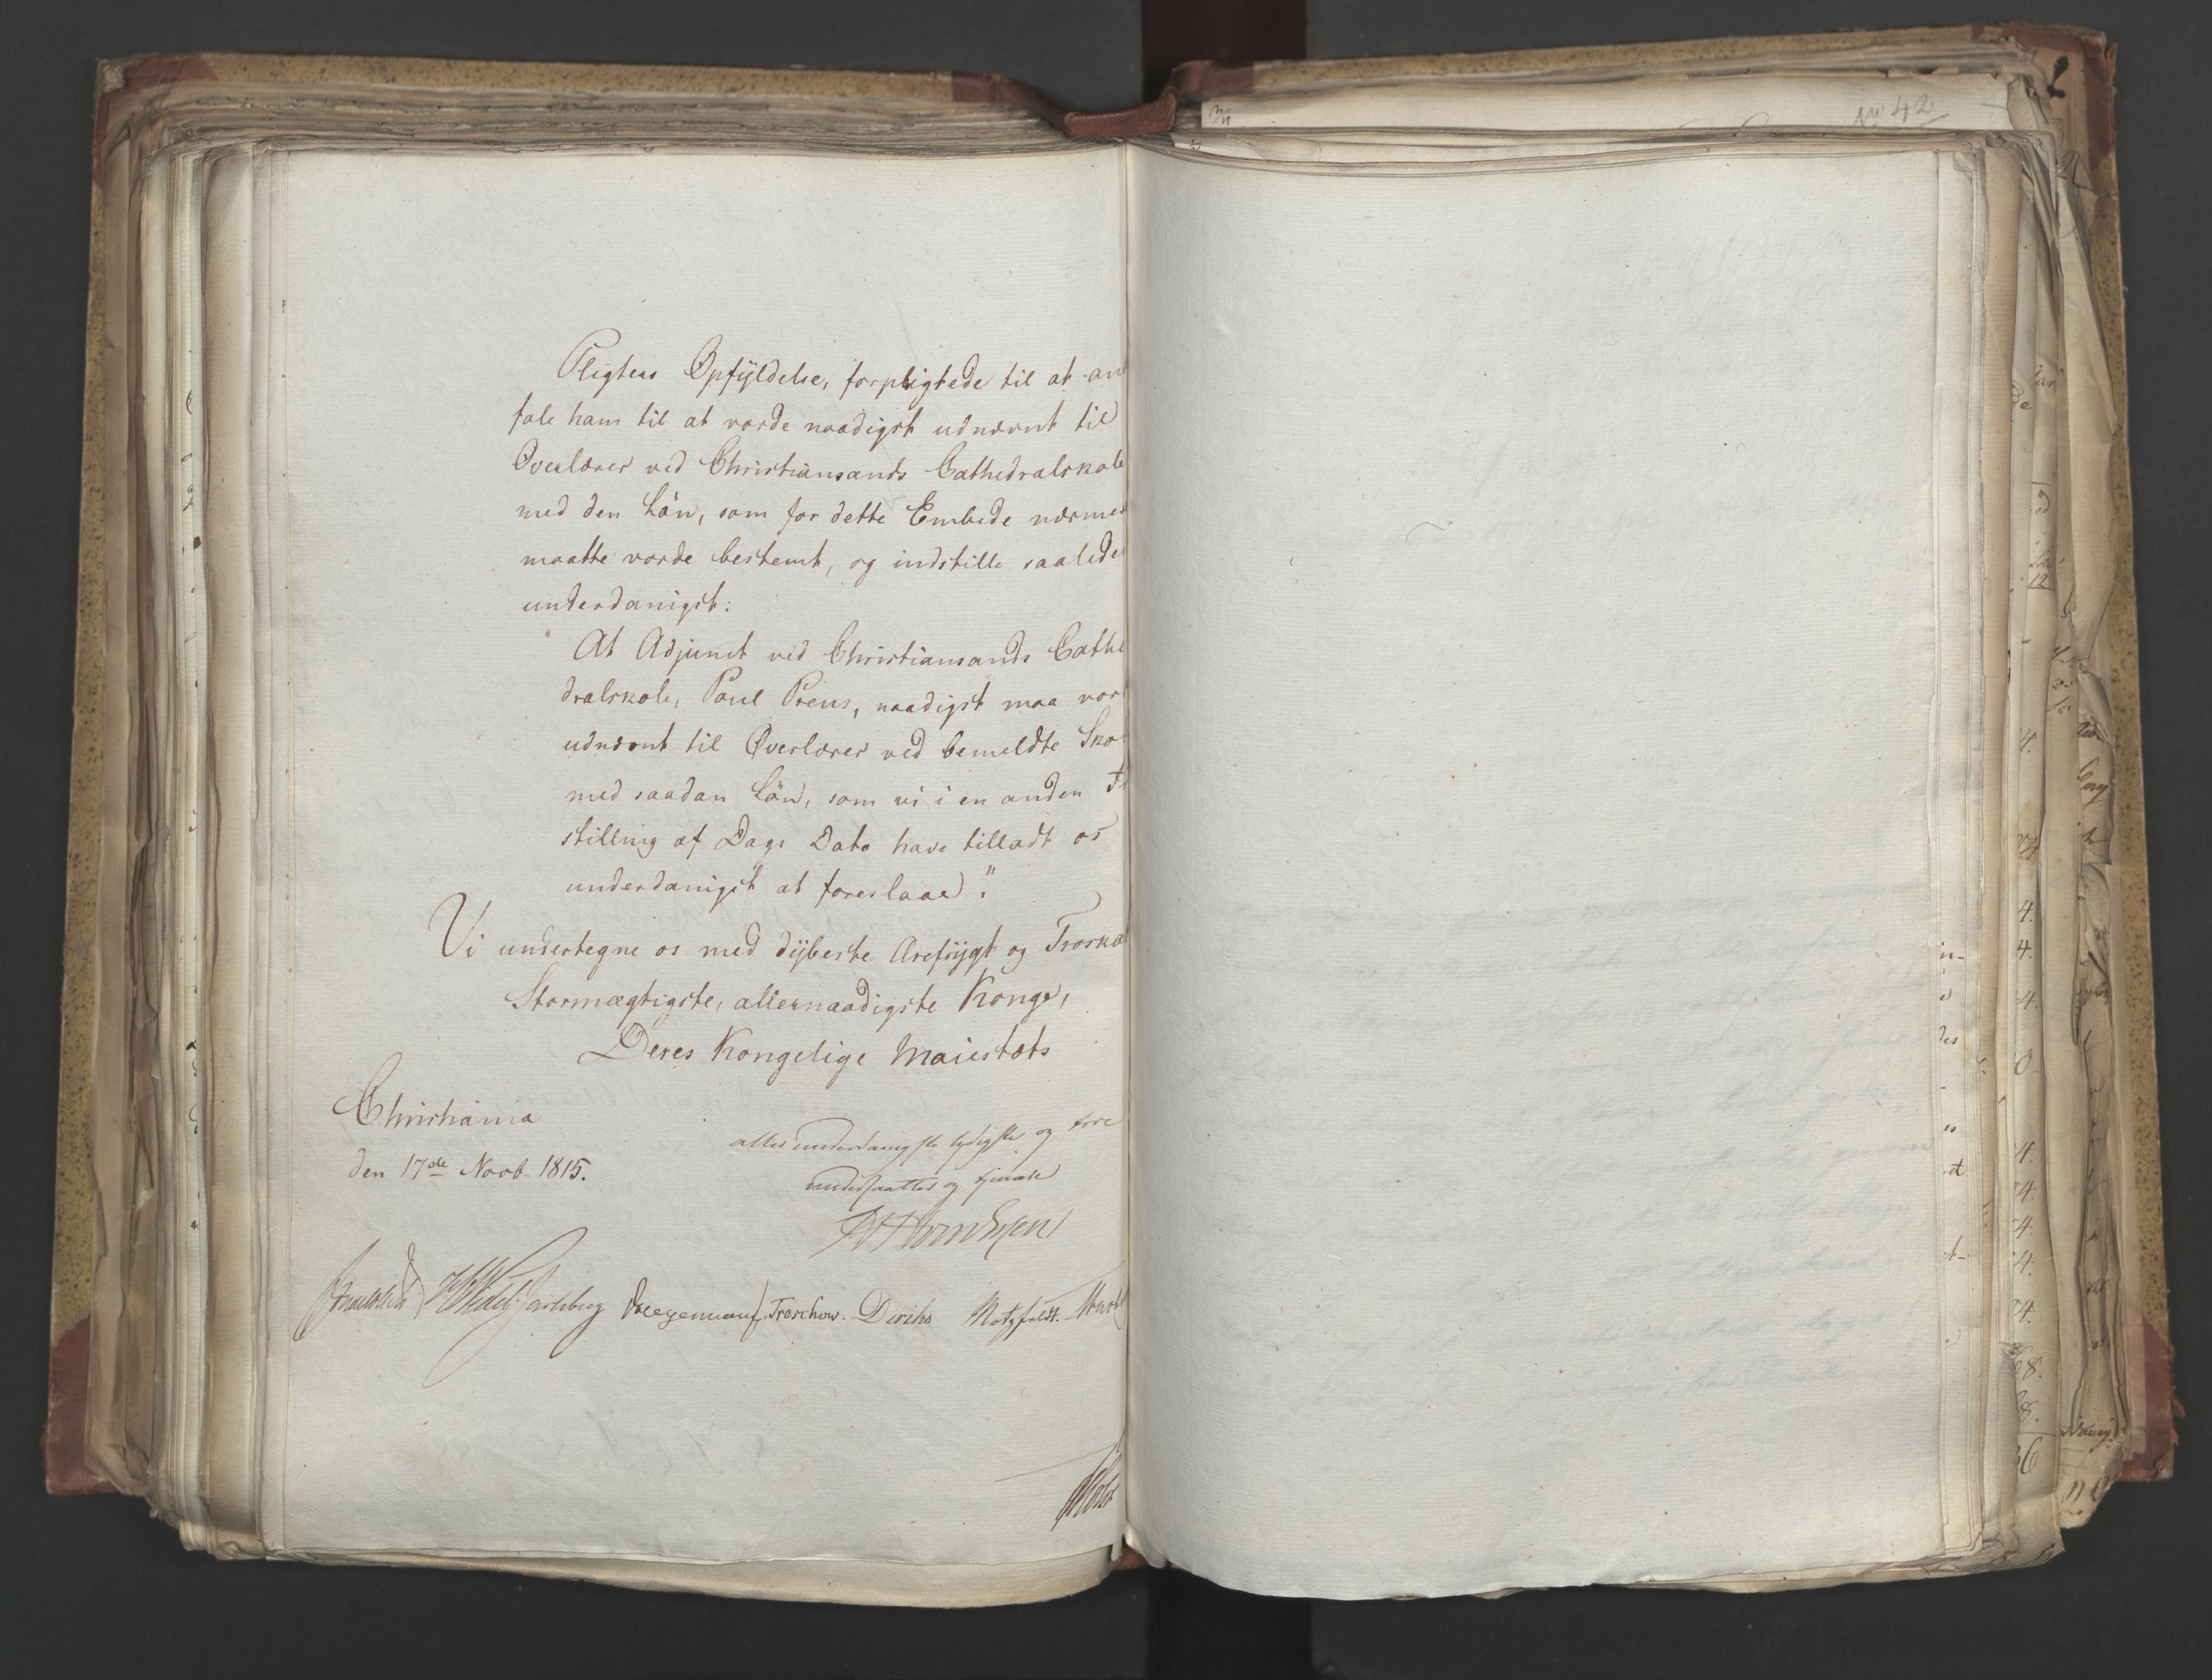 Nº 42
Pligters Opfÿldelse, forpligtede til at an
fale ham til at vorde naadigst udnævnt til
Overlærer ved Christiansands Cathedralskole
med den Lön, som for dette Embede nærmer
maatte vorde bestemt, og indstille saalede
underdanigst:
"At Adjunct ved Christiansands Cathe
dralskole, Poul Preus, naadigst maa vor
udnævnt til Overlærer ved bemeldte Sko
med saadan Lön, som vi i en anden
stilling af Dags Dato have tilladt os
underdanigst at foreslaae".
Vi undertegne os med dÿbeste Ærefrÿgt og Troska
Stormægtigste, allernaadigste Konge,
Deres Kongelige Maiestæts
Christiania
den 17de Novb. 1815.
allerunderdanigste lydigste og troe
undersaatter og tjenere
Wedel Jarlsberg Hegermann Treschow. Diriks Motzfeldt.
Holst